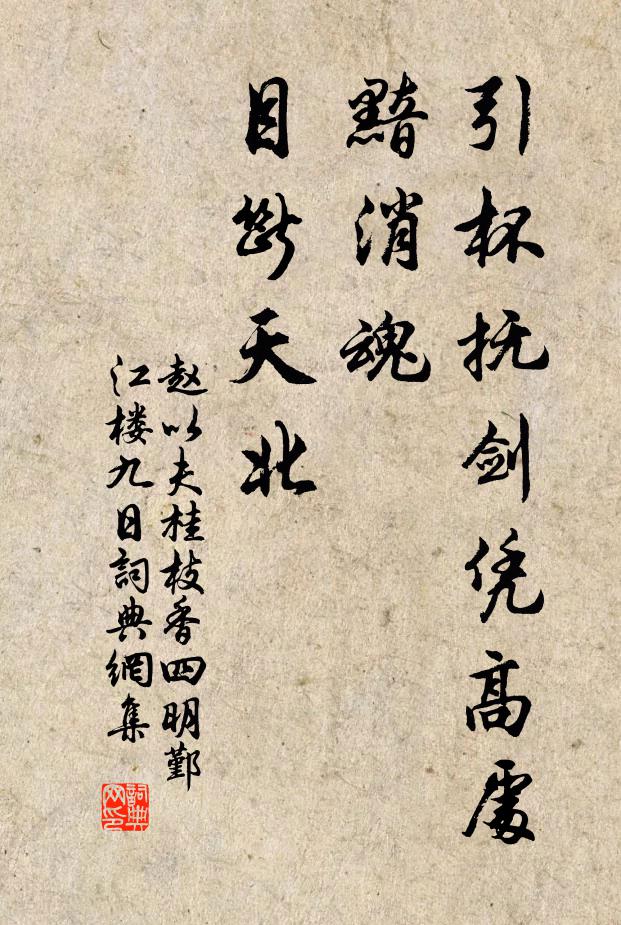 引杯抚剑凭高處
黯消魂
目断天北
赵以夫桂枝香四明鄞
江楼九日詞典網集
詞典網印